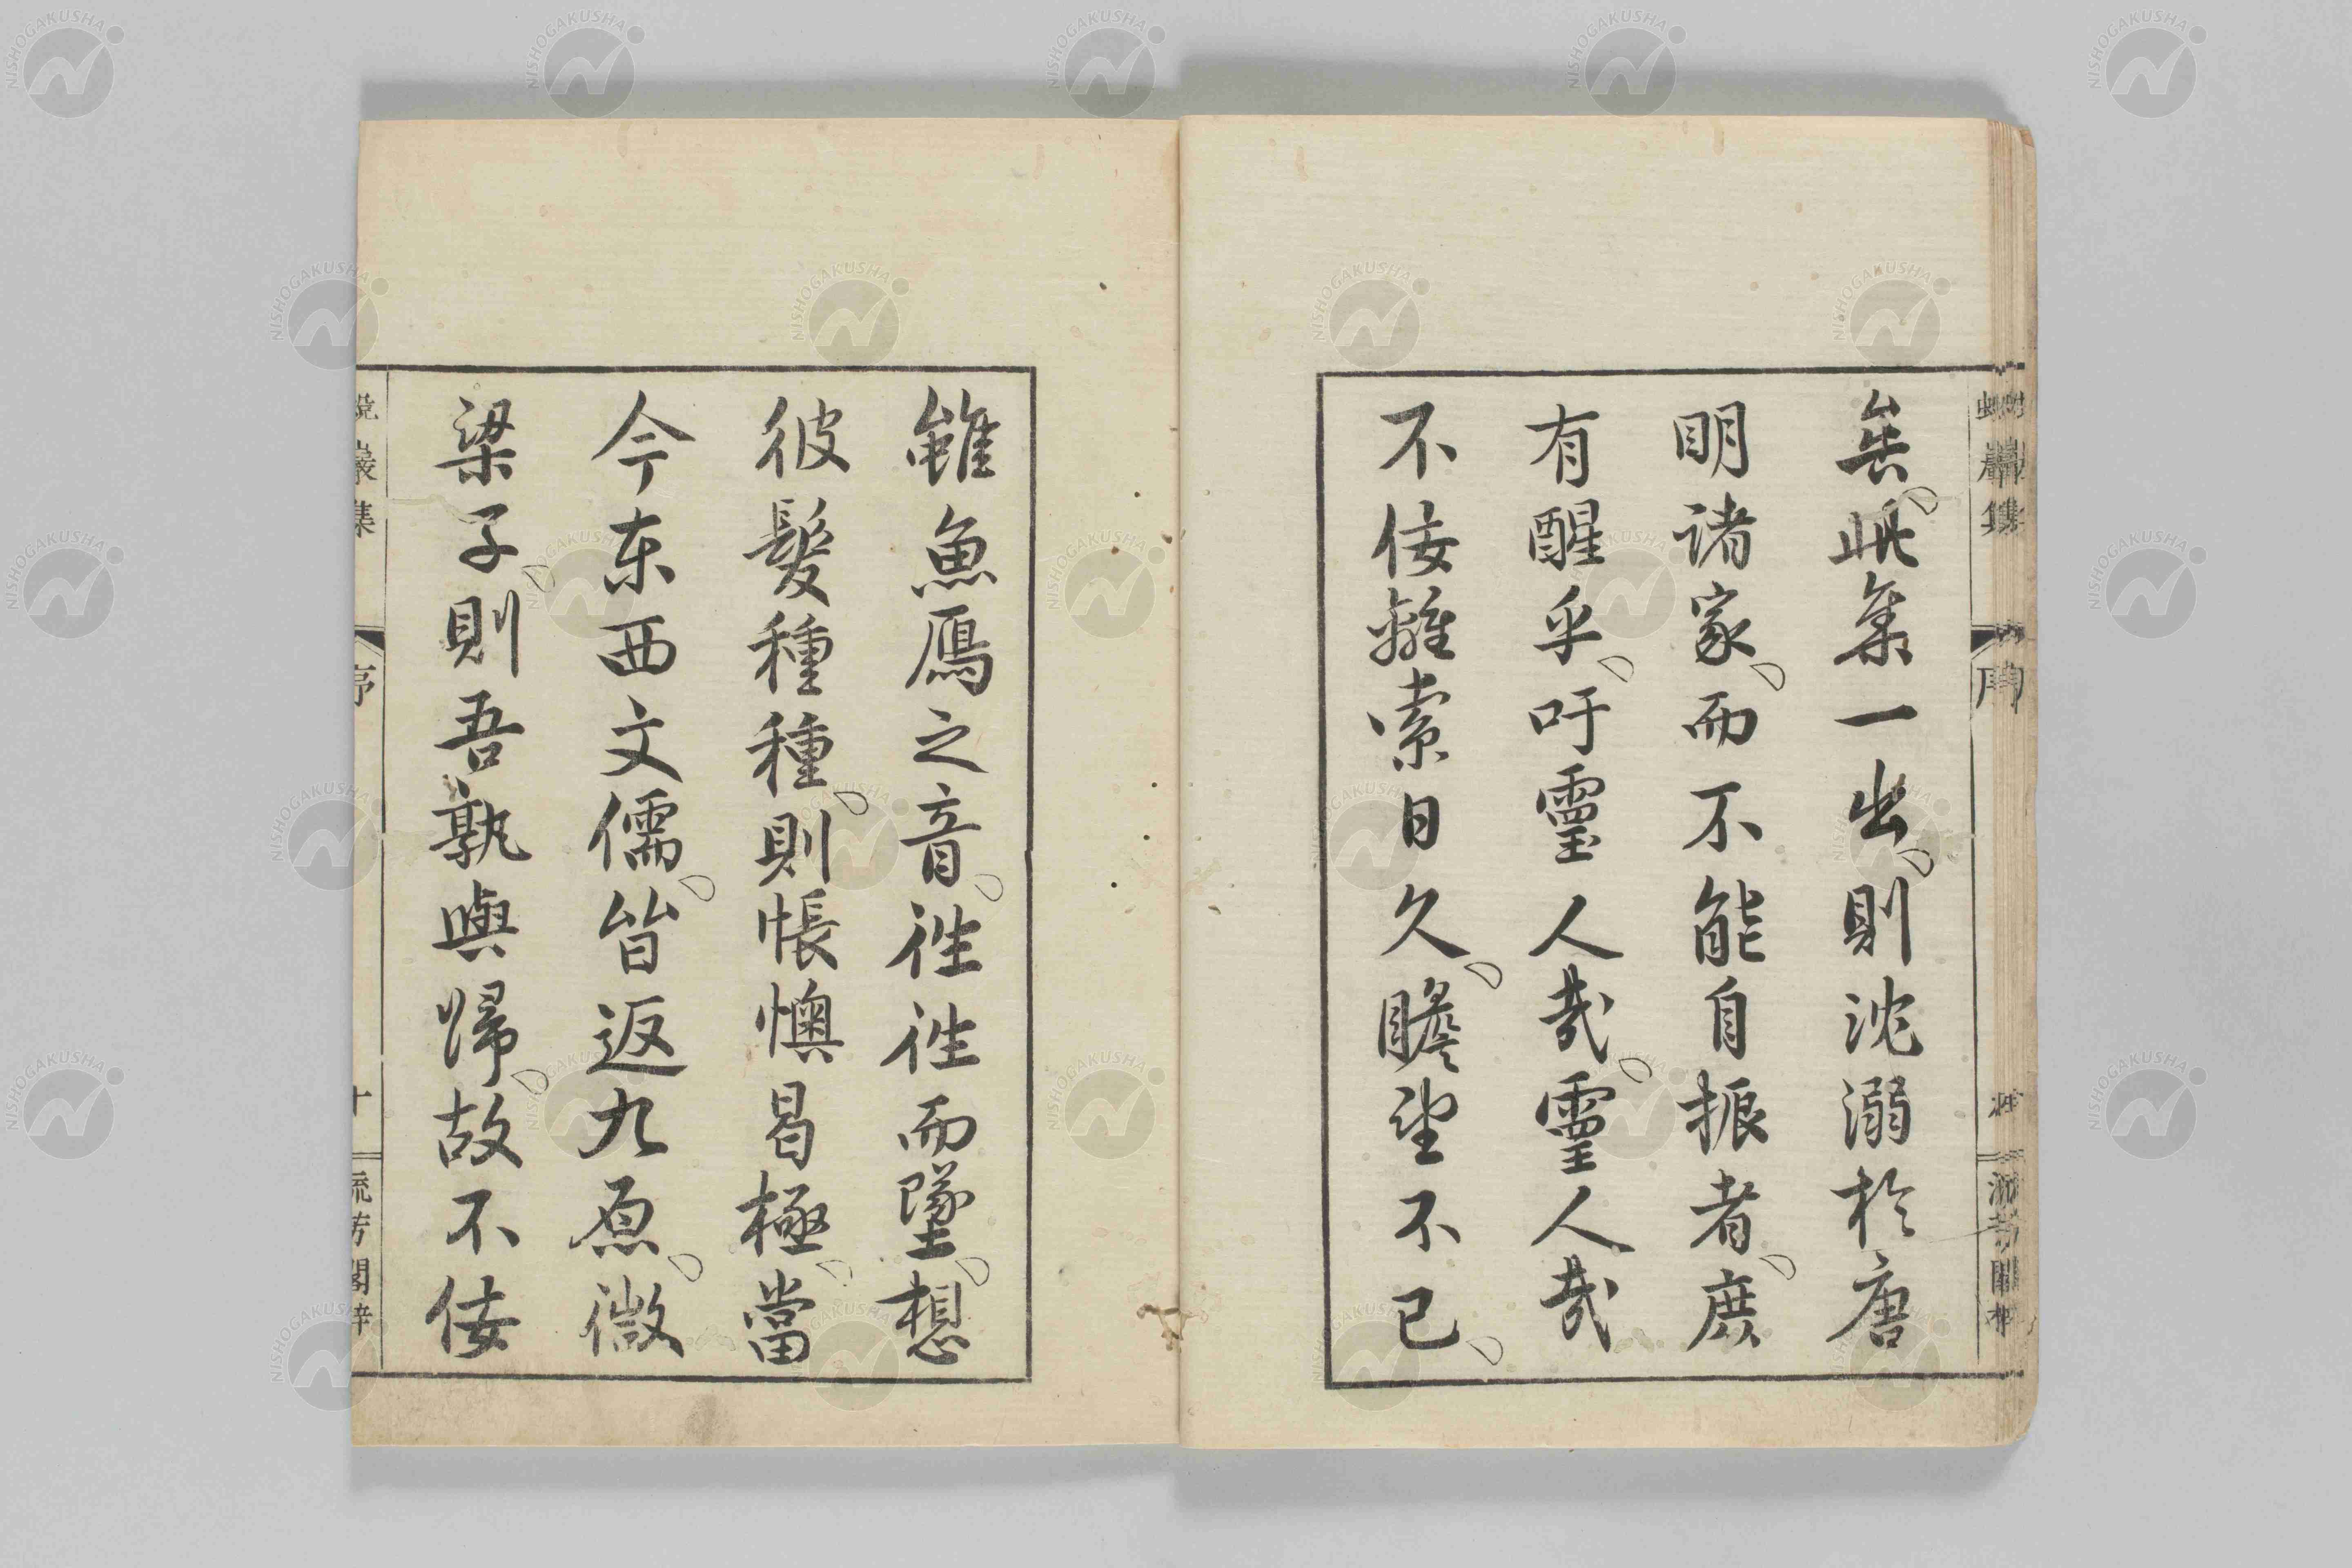 矣、此集一出、則沈溺於唐
明諸家、而不能自振者、庶
有醒乎、吁靈人哉、靈人哉
不佞離索日久、瞻望不已、
雖魚鴈之音、往往而墜、想
彼髮種種、則悵懊曷極、當
今东西文儒、皆返九原、微
梁子、則吾孰與歸、故不佞
蛻巖集
序
十
流芳閣梓
NISHOGAKUSHA